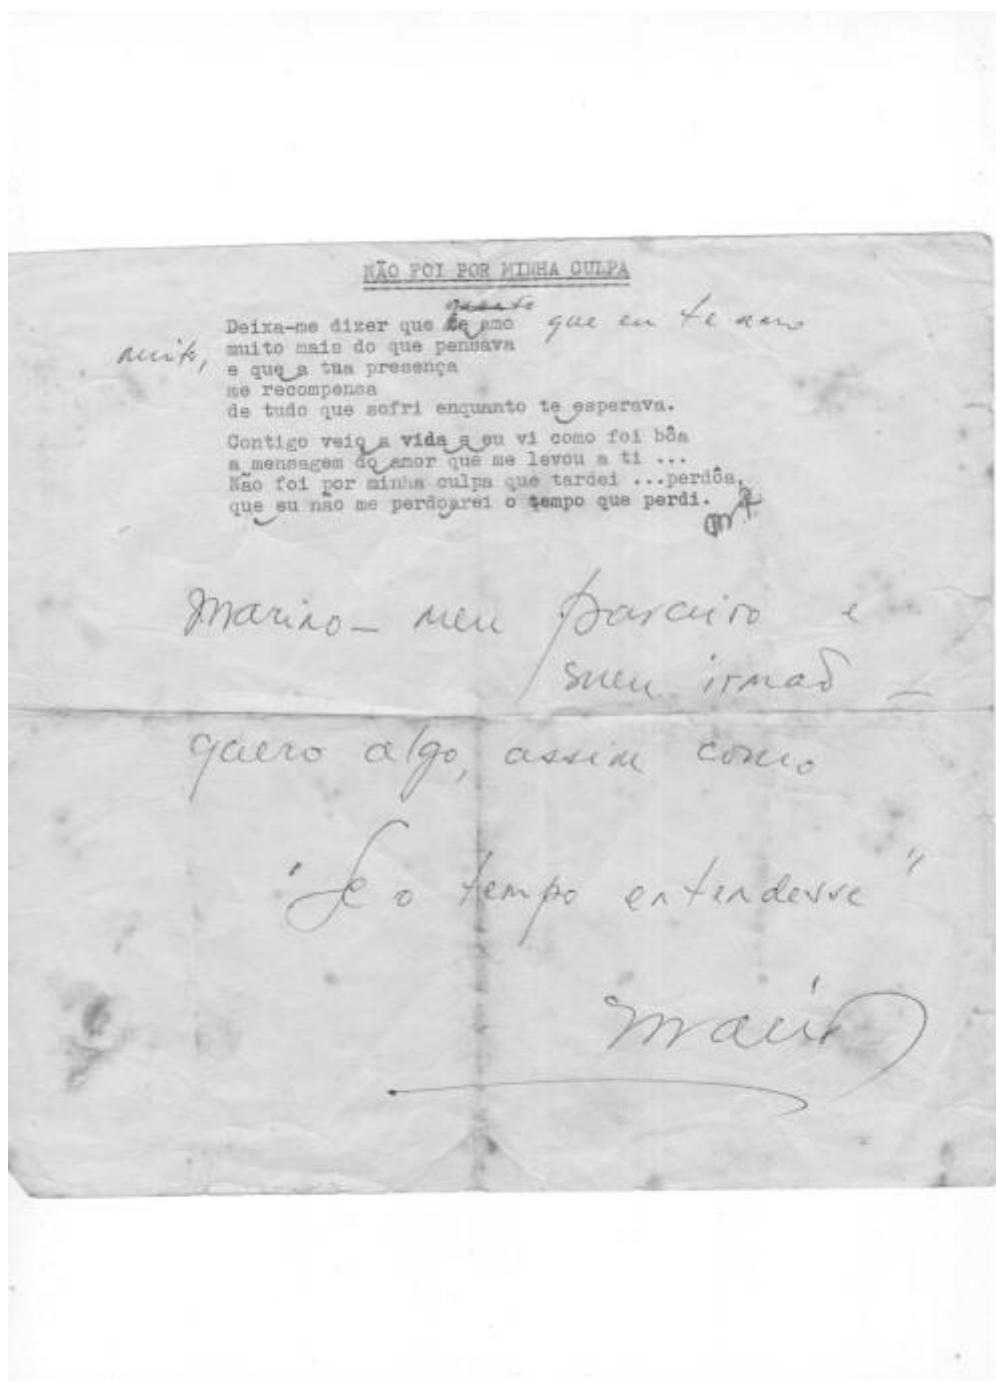 NÃO FOI POR MINHA CULPA
quanto
Deixa-me dizer que te amo que eu te amo
muito, muito mais do que pensava
e que a tua presença
me recompensa
de tudo que sofri enquanto te esperava.
Contigo veio a vida a eu vi como foi bôa
a mensagem do amor que me levou a ti ...
Não foi por minha culpa que tardei ...perdôa,
que eu não me perdoarei o tempo que perdi.
Marino - meu parceiro e
meu irmão -
quero algo, assim como
"Se o tempo entendesse"
Mário